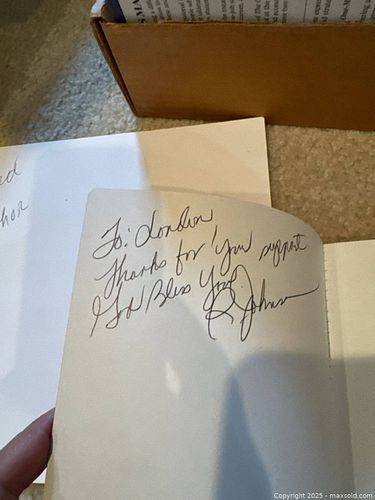 To: London
Thanks for you support
God Bless You!
R. Johnson
ed
hor
Copyright 2025 - maxsold.com